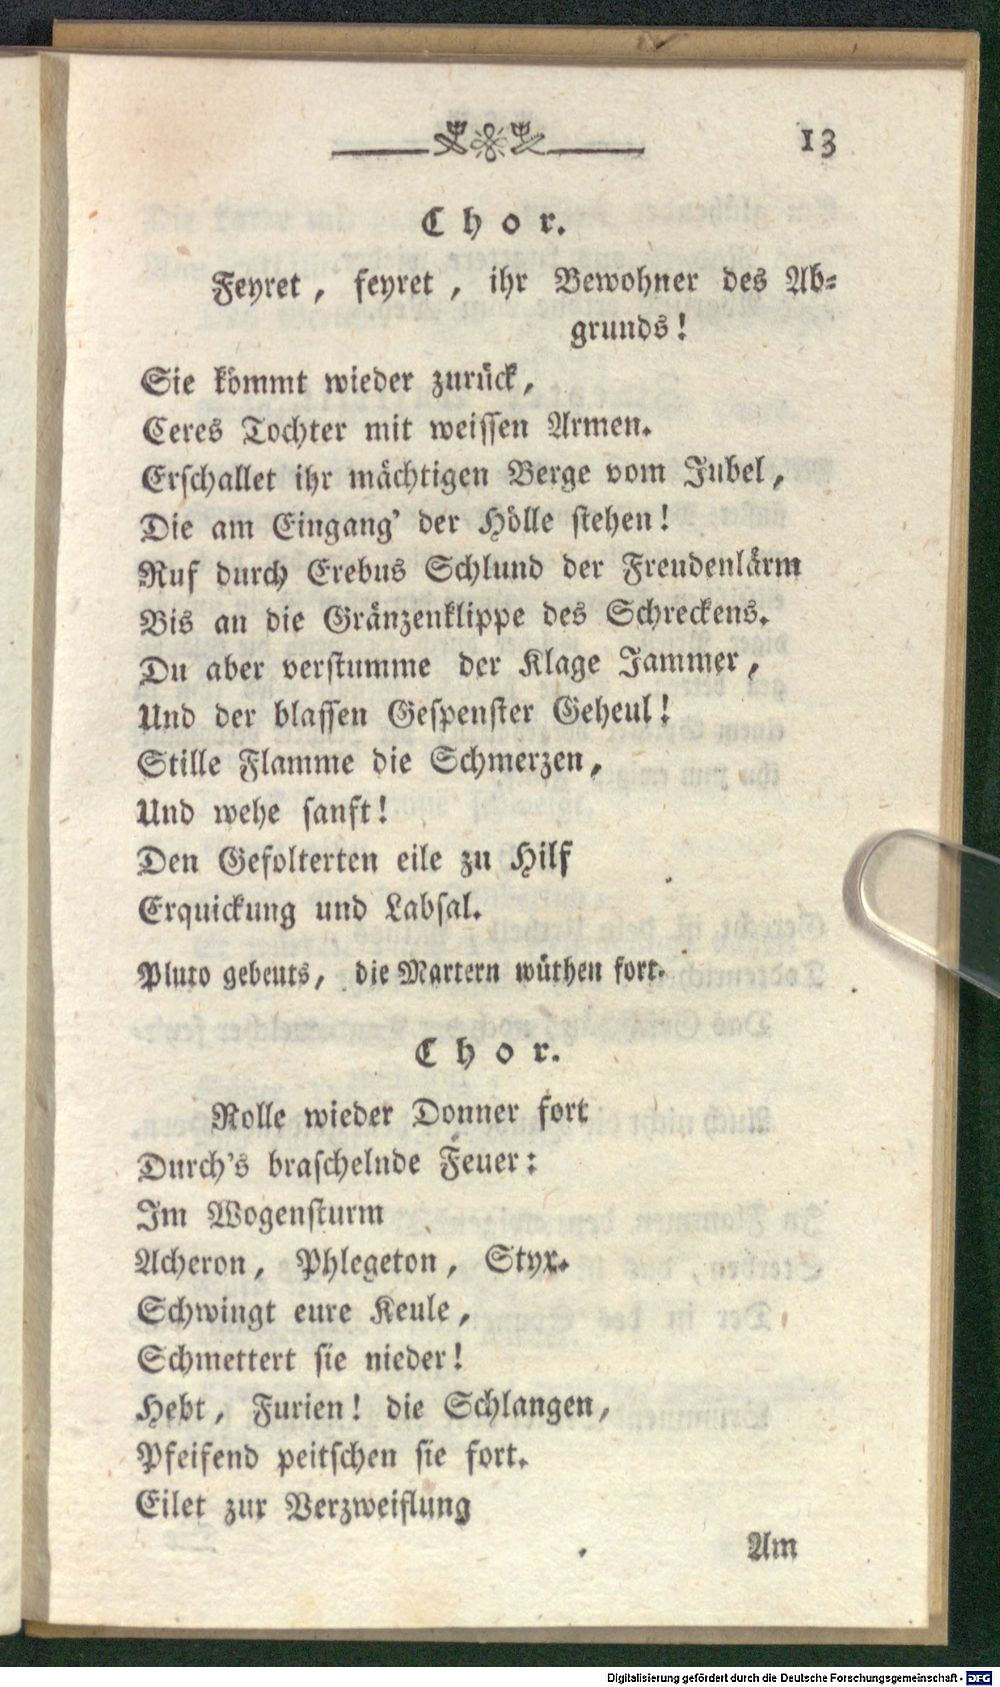 13
Chor.
Feyret, feyret, ihr Bewohner des Ab-
grunds!
Sie kömmt wieder zurück,
Ceres Tochter mit weissen Armen.
Erschallet ihr mächtigen Berge vom Jubel,
Die am Eingang' der Hölle stehen!
Ruf durch Erebus Schlund der Freudenlärm
Bis an die Gränzenklippe des Schreckens.
Du aber verstumme der Klage Jammer,
Und der blassen Gespenster Geheul!
Stille Flamme die Schmerzen,
Und wehe sanft!
Den Gefolterten eile zu Hilf
Erquickung und Labsal.
Pluto gebeuts, die Martern wüthen fort.
Chor.
Rolle wieder Donner fort
Durch's braschelnde Feuer:
Im Wogensturm
Acheron, Phlegeton, Styx.
Schwingt eure Keule,
Schmettert sie nieder!
Hebt, Furien! die Schlangen,
Pfeifend peitschen sie fort.
Eilet zur Verzweiflung
Am
Digitalisierung gefördert durch die Deutsche Forschungsgemeinschaft - DFG